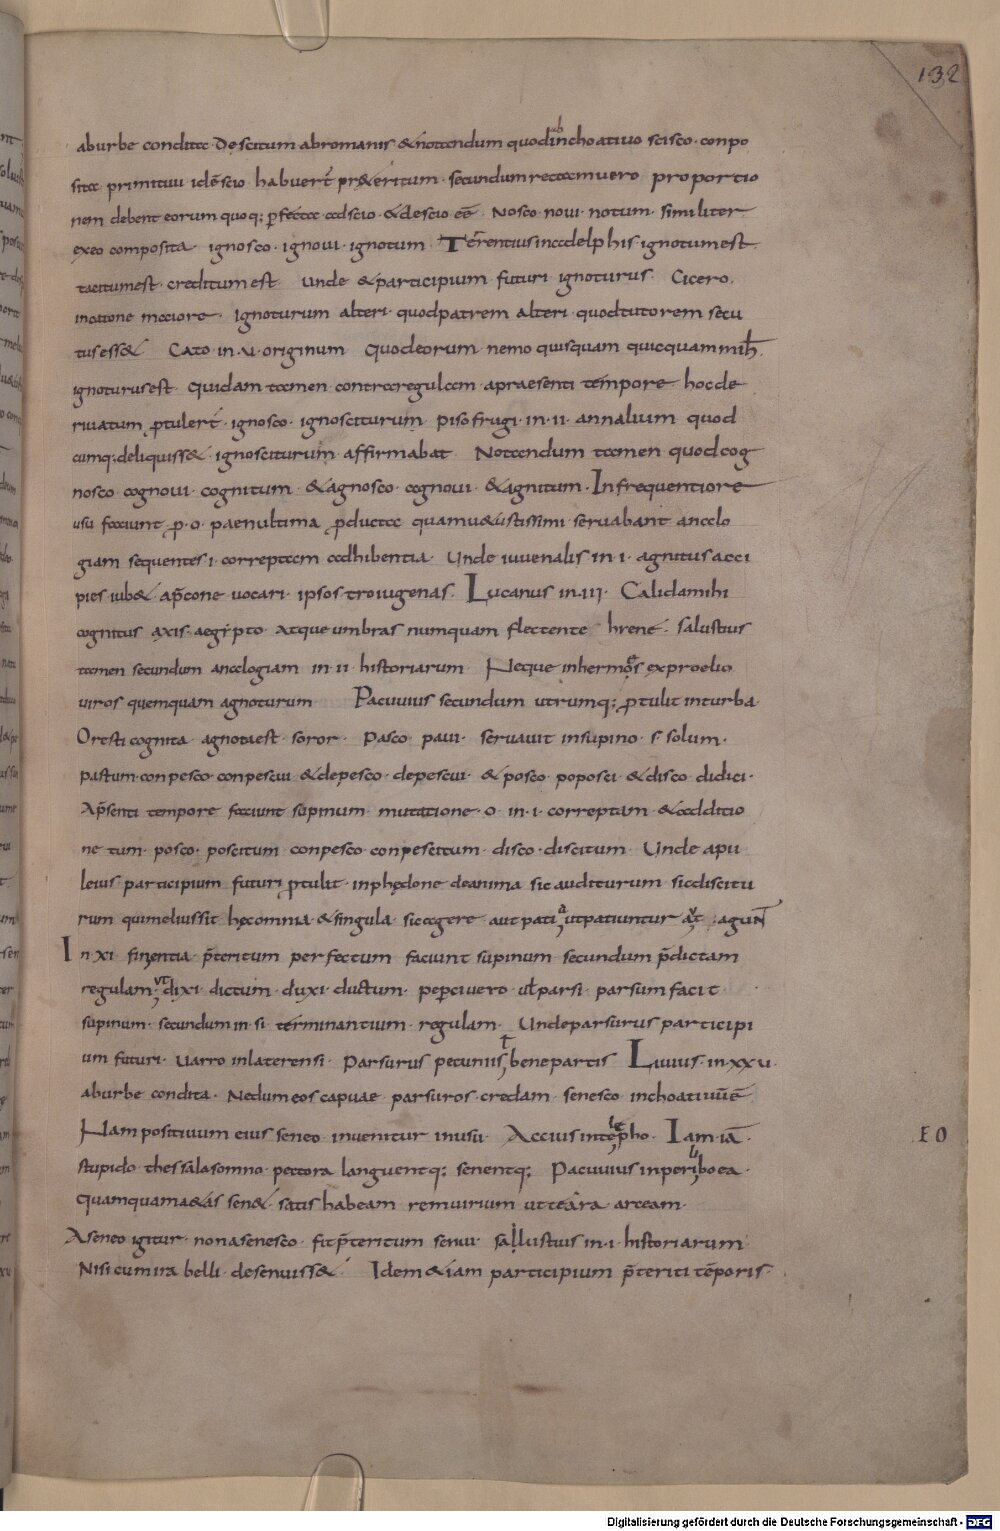 132
aburbe condita. Descitum abromanis &notandum quod inchoatiuo scisco. conpo
sita primitiui idē scio habuer̄ pr&eritum. secundum rectam uero proportio
nem debent eorum quoq; p̄fecta adscio. & descio eē. Nosco. noui. notum. similiter
exeo composita ignosco. ignoui. ignotum Terentius inadelphis ignotumest
tacitumest. creditum est unde & participium futuri ignoturus Cicero.
incatone maiore. Ignoturum alteri. quodpatrem alteri. quodtutorem secu
tusess& Cato. in. ui. originum Quodeorum nemo quisquam quicquam mih̄.
ignoturusest. Quidam tamen contraregulam apraesenti tempore hocde
riuatum p̄tuler̄. ignosco. ignosciturum pisofrugi. in. ii. annalium quod
cumq; deliquiss& ignosciturum affirmabat Notandum tamen quodcog
nosco cognoui. cognitum. & agnosco. cognoui. & agnitum. Infrequentiore
usu faciunt p̄. o. paenultima p̄ducta quamu&ustissimi seruabant analo
giam sequentes. i. correptam adhibentia. Unde iuuenalis in. i. agnitus acci
pies iub& ap̄cone uocari. ipsos troiugenas. Lucanus in. iii. Calidamihi
cognitus axis. aegipto. Atque umbras numquam flectente hrene. salustius
tamen secundum analogiam in. ii. historiarum Neque inhermos exproelio
uiros quemquam agnoturum Pacuuius secundum utrumq; p̄tulit inturba
Oresti cognita agnotaest soror. Pasco paui. seruauit insupino. s. solum.
pastum. conpesco. conpescui & depesco. depescui. & posco. poposci. & disco. didici.
Ap̄senti tempore faciunt supinum. mutatione. o. in. i. correptam. & additio
ne tum. posco. poscitum conpesco conpescitum. disco. discitum. Unde apu
leius participium futuri p̄tulit. inphędone deanima sic auditurum sicdiscitu
rum quimeliussit hęcomnia & singula. sicagere aut pati a utpatiuntur aut. agunt
In xi finentia. p̄teritum perfectum faciunt supinum secundum p̄dictam
regulam; ut dixi dictum. duxi. ductum. peperciuero ul̄ parsi. parsum facit.
supinum. secundum in. si. terminantium. regulam. Undeparsurus participi
um futuri. Uarro inlaterensi. Parsurus pecuniis t bene partis Liuius. in. xxu.
aburbe condita. Nedumeos capuae parsuros. credam. senesco inchoatiuūē
Nam positiuum eius seneo. inuenitur inusu. Accius intelepho. Iam. iā.
stupido thessalasomno pectora languentq; senentq; Pacuuius inperiboea.
quamquamaetas sen& satis habeam remuirium utteāra arceam.
Aseneo igitur. nonasenesco. fitp̄teritum senui. sallustius in. i. historiarum
Nisi cum ira belli. desenuiss& Idem &iam participium p̄teriti tēporis.
EO
Digitalisierung gefördert durch die Deutsche Forschungsgemeinschaft - DFG